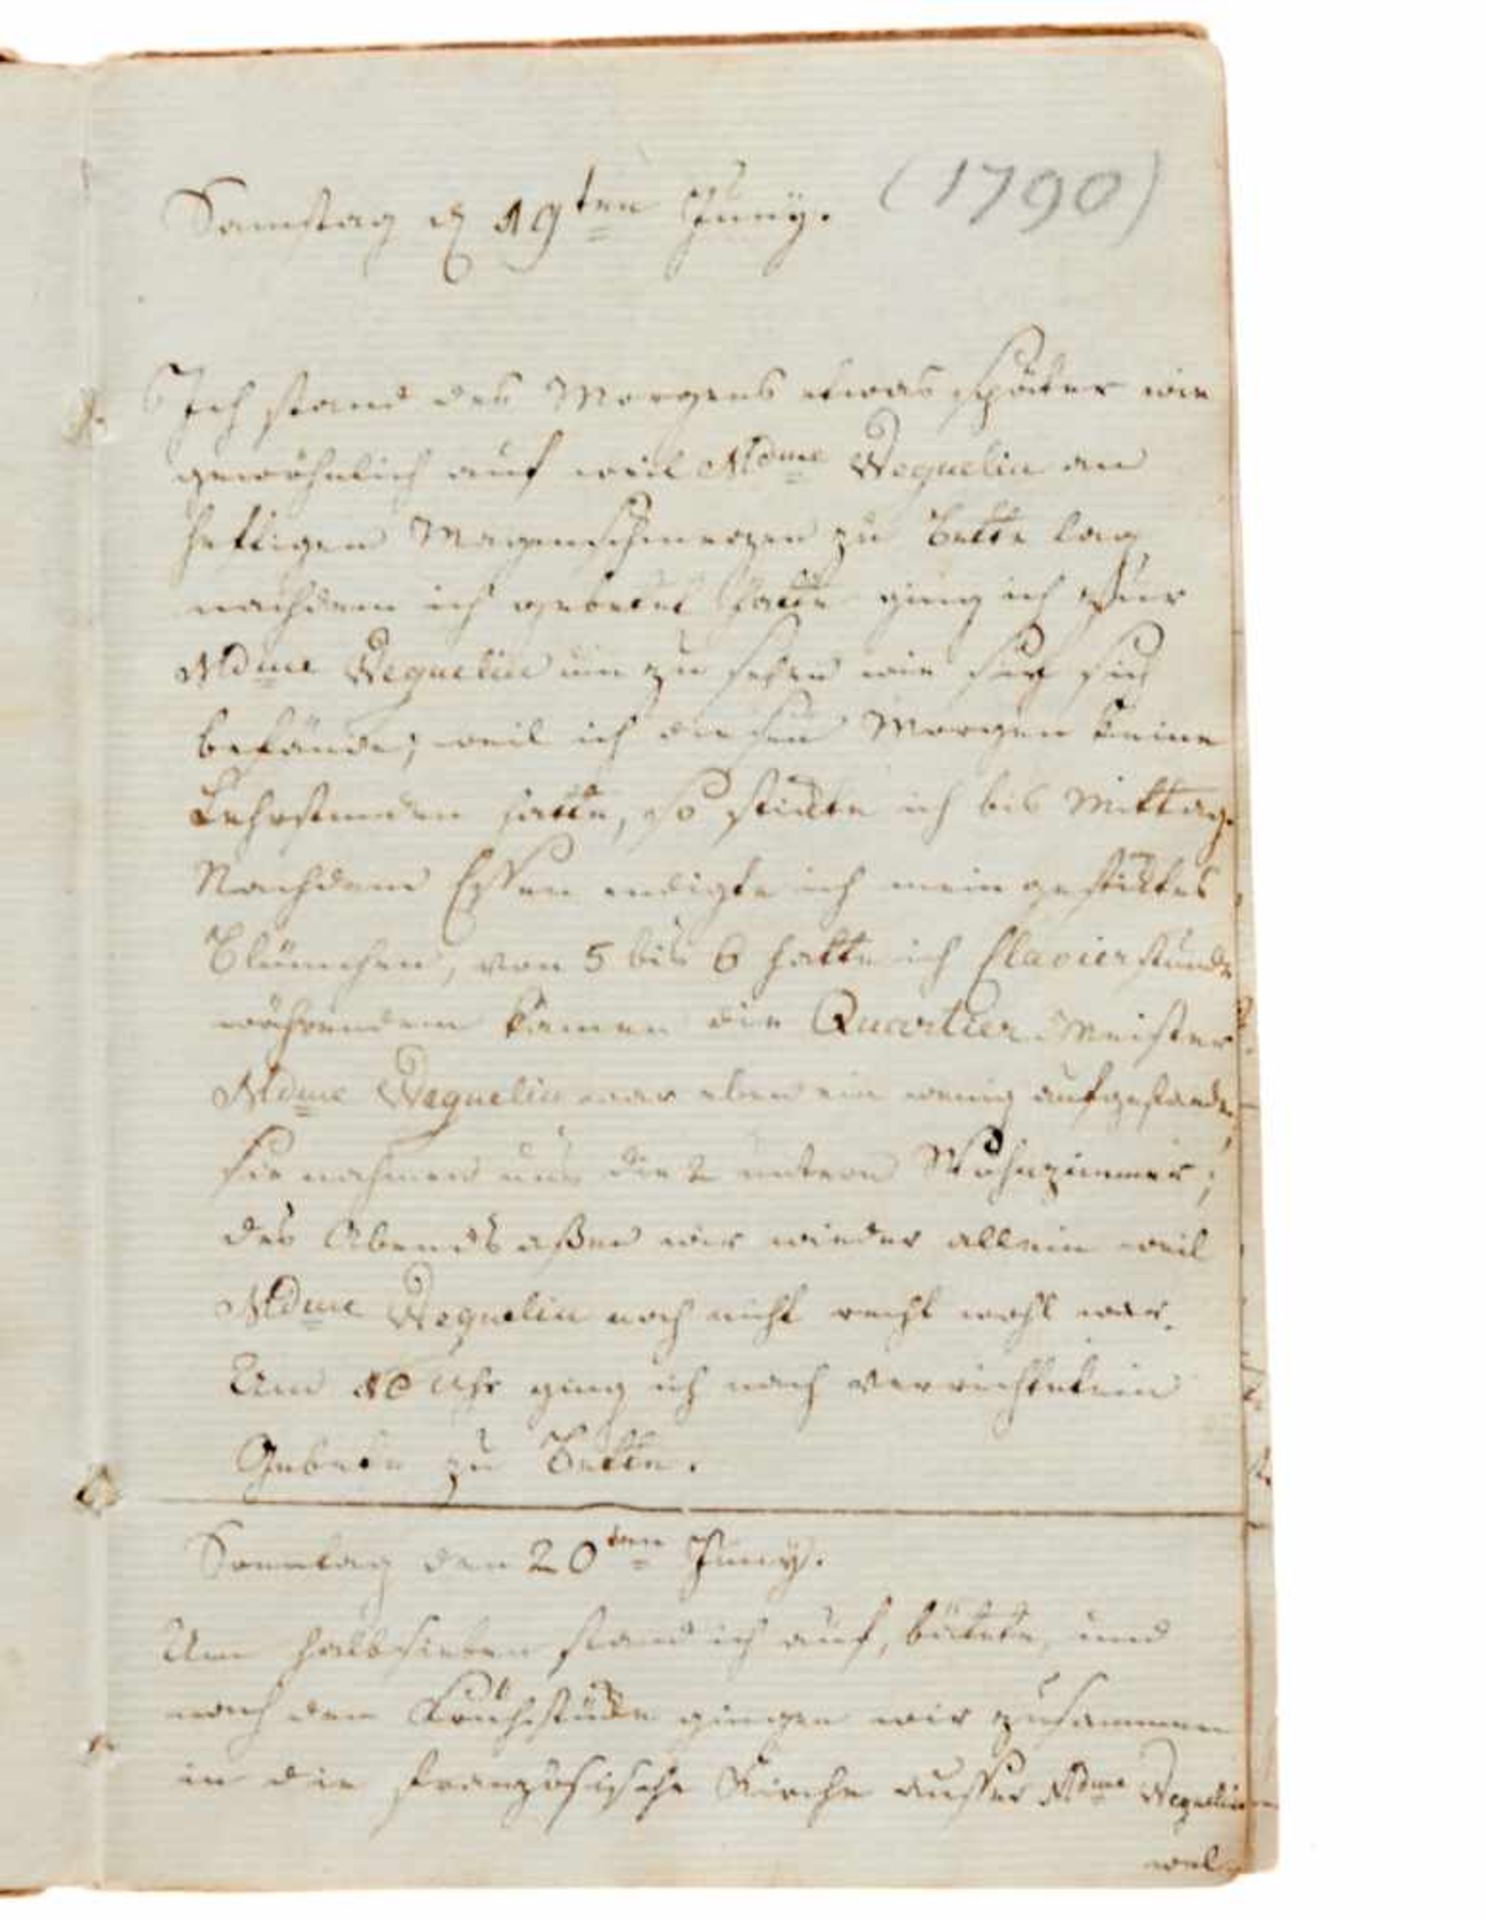 Samstag d 19ten Juny. (1790)
Ich stand des Morgens etwas später wie
gewöhnlich auf weil Mdme Wequelin an
heftigen Magenschmerzen zu Bette lag
nachdem ich gebetet hatte ging ich zur
Mdme Wequelin um zu sehen wie sie sich
befände; weil ich diesen Morgen keine
Lehrstunden hatte, so stickte ich bis Mittag.
Nachdem Essen endigte ich mein gesticktes
Blümchen, von 5 bis 6 hatte ich Clavierstunde
währendem kamen die Quartier Meister
Mdme Wequelin war eben ein wenig aufgestanden,
sie nahmen uns die 2 untern Wohnzimmer;
des Abends aßen wir wieder allein weil
Mdme Wequelin noch nicht recht wohl war.
Um 10 Uhr ging ich nach verrichtetem
Gebete zu Bette.
Sonntag den 20ten Juny.
Um halbsieben stand ich auf, bätete, und
nach dem Frühstücke gingen wir zusammen
in die französische Kirche ausser Mdme Wequelin
weil